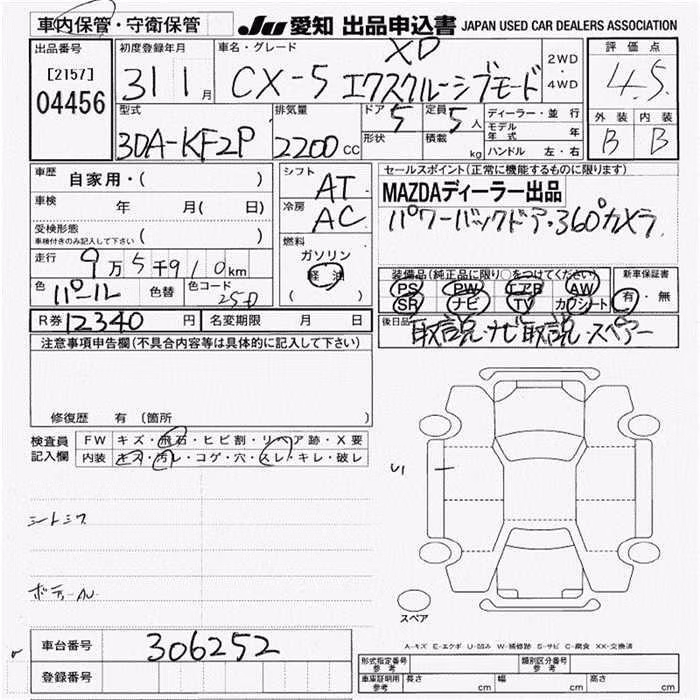 車内保管・守衛保管 JU 愛知 出品申込書 JAPAN USED CAR DEALERS ASSOCIATION
出品番号 初度登録年月 車名・グレード XD 2WD・4WD 評価点
[2157] 04456 31 1月 CX-5 エクスクルーシブモード 4.5
型式 排気量 ドア 5 定員 5人 ディーラー・並行 外装 内装
3DA-KF2P 2200cc 形状 積載 kg モデル年式 年 B B
ハンドル 左・右
車歴 自家用・( ) シフト AT セールスポイント(正常に機能するものに限ります)
車検 年 月( 日) 冷房 AC MAZDAディーラー出品
受検形態 車検付きのみ記入して下さい ( ) パワーバックドア・360°カメラ
走行 9万5千910km 燃料 ガソリン 軽油 ( )
色 パール 色替 色コード 25D
装備品(純正品に限り○をつけてください) 新車保証書
PS PW エアB AW 有・無
SR ナビ TV カワシート
R券 12340円 名変期限 月 日 後日品 取説・ナビ取説・スペアー
注意事項申告欄(不具合内容等は具体的に記入して下さい)
修復歴 有 (箇所 )
検査員記入欄 FW キズ・飛石・ヒビ割・リペア跡・X要
内装 キズ・汚レ・コゲ・穴・スレ・キレ・破レ
U1
シートシワ
スペア
A-キズ E-エクボ U-凹み W-補修跡 S-サビ C-腐食 XX-交換済
車台番号 306252
登録番号
形式指定番号 参考 類別区分番号 参考
車庫証明用 参考 長さ cm 幅 cm 高さ cm